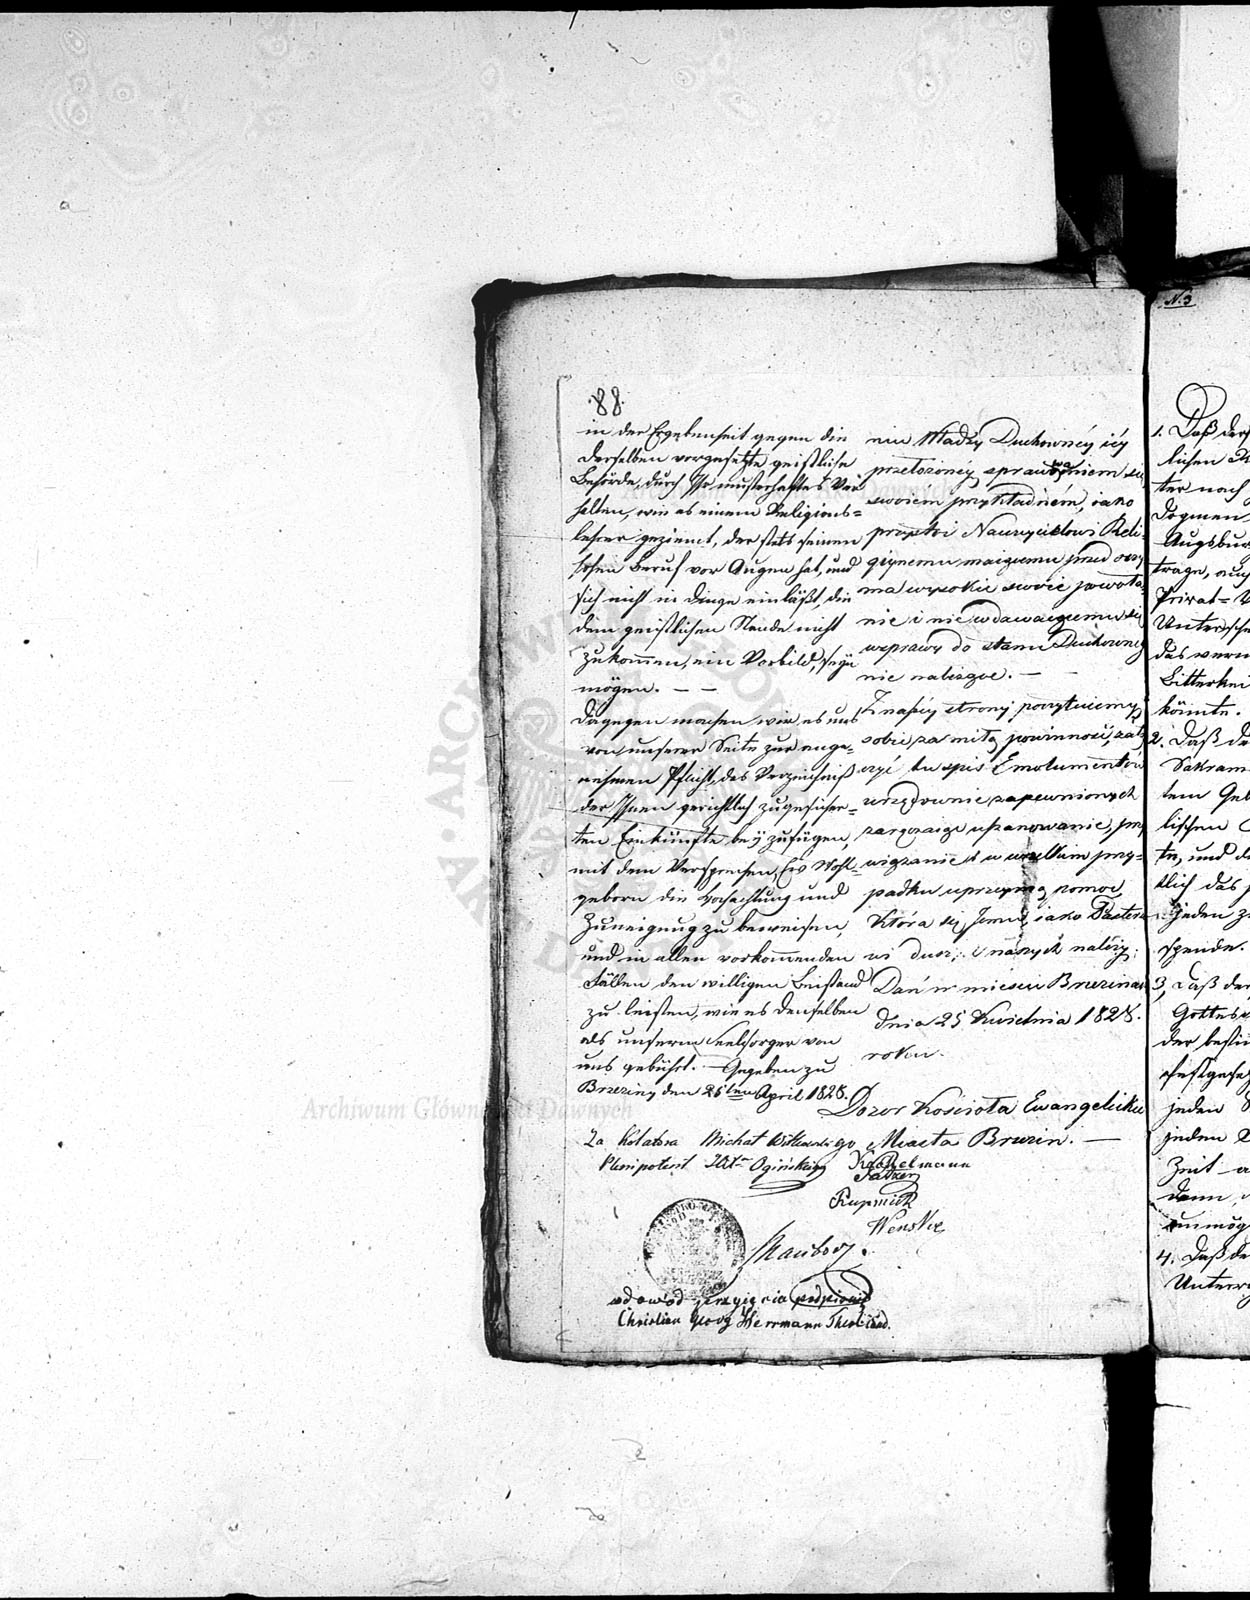 88.
in der Ergebenheit gegen die
derselben vorgesetzte geistliche
Behörde, durch Ihr musterhaftes Ver
halten, wie es einem Religions=
lehrer geziemt, der stets seinen
hohen Beruf vor Augen hat, und
sich nicht in Dinge einläßt, die
dem geistlichen Stande nicht
zukommen, ein Vorbild, seyn
mögen. — —
Dagegen machen wir es uns
von unserer Seite zur ange=
nehmen Pflicht, das Verzeichniß
der Ihnen gerichtlich zugesicher=
ten Einkünfte bey zufügen,
mit dem Versprechen, Ew Wohl=
geborn die Hochachtung und
Zuneigung zu beweisen,
und in allen vorkommenden
Fällen den willigen Beistand
zu leisten, wie es denselben
als unserm Seelsorger von
uns gebührt. — Gegeben zu
Brzeziny den 25ten April 1828.
niu Władzy Duchownéy iéy
przełożonéy, sprawowaniem się
swoiém przykładném, iako
przystoi Nauczycielowi Reli-
giynemu maiącemu przed oczy
ma wysokie swoie powoła-
nie i nie wdawaiącemu się
w sprawy do stanu Duchowneg
nie należące. —
Z naszéy strony poczytuiemy
sobie za miłą powinność, załą
czyć tu spis Emolumentów
urzędownie zapewnionych
zaręczaiąc uszanowanie, przy
wiązanie i w wszelkim przy=
padku uprzeymą pomoc,
Która się Jemu, iako Pasterzo
wi dusz, naszych należy.
Dań w miescie Brzezinach
dnia 25 Kwietnia 1828.
roku.
Dozor Kościoła Ewangelickie
go Miasta Brzezin. —
Za Kolatora Michał
Plenipotent Ogińskiego
Wenske
odowod przyięcia podpisuie
Christian Georg Herrmann
Archiwum Główne Akt Dawnych
N. 3
1. Daß ders
lichen
ter nach
Dogmen,
Augsbur
trage, auch
Privat=
Untersche
das verm
Bitterkei
könnte.
2. Daß de
Sakram
tem Geb
lischen
te, und d
tlich das
jeden z
spende.
3, Daß der
Gottes
der besti
festgese
jeden
jeden
Zeit a
denn,
unmög
4. Daß de
Unterr